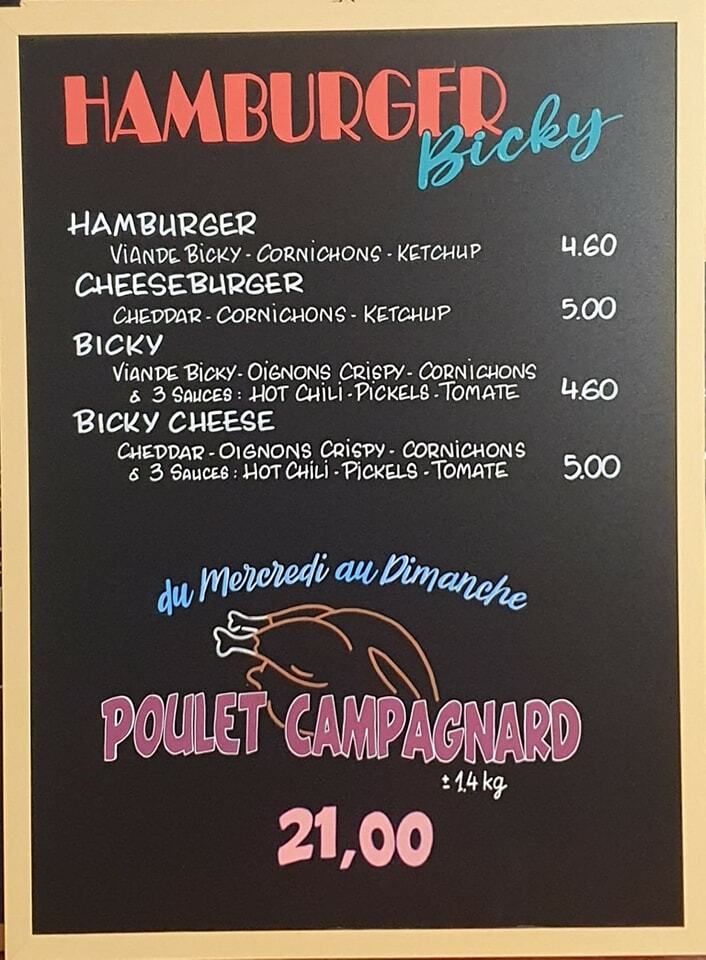 HAMBURGER
Bicky
HAMBURGER
VIANDE BICKY - CORNICHONS - KETCHUP 4.60
CHEESEBURGER
CHEDDAR - CORNICHONS - KETCHUP 5.00
BICKY
VIANDE BICKY - OIGNONS CRISPY - CORNICHONS
& 3 SAUCES : HOT CHILI - PICKELS - TOMATE 4.60
BICKY CHEESE
CHEDDAR - OIGNONS CRISPY - CORNICHONS
& 3 SAUCES : HOT CHILI - PICKELS - TOMATE 5.00
du Mercredi au Dimanche
POULET CAMPAGNARD
± 1,4 kg
21,00